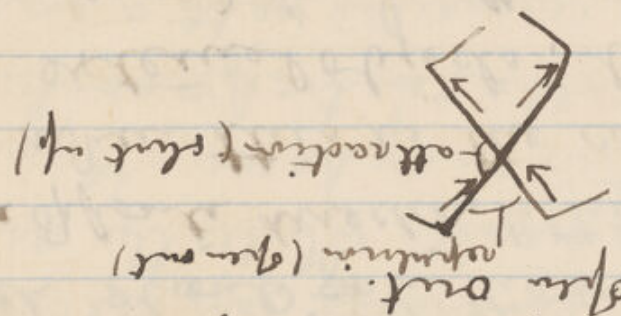 open out.
repulsion (open out)
attraction (shut up)